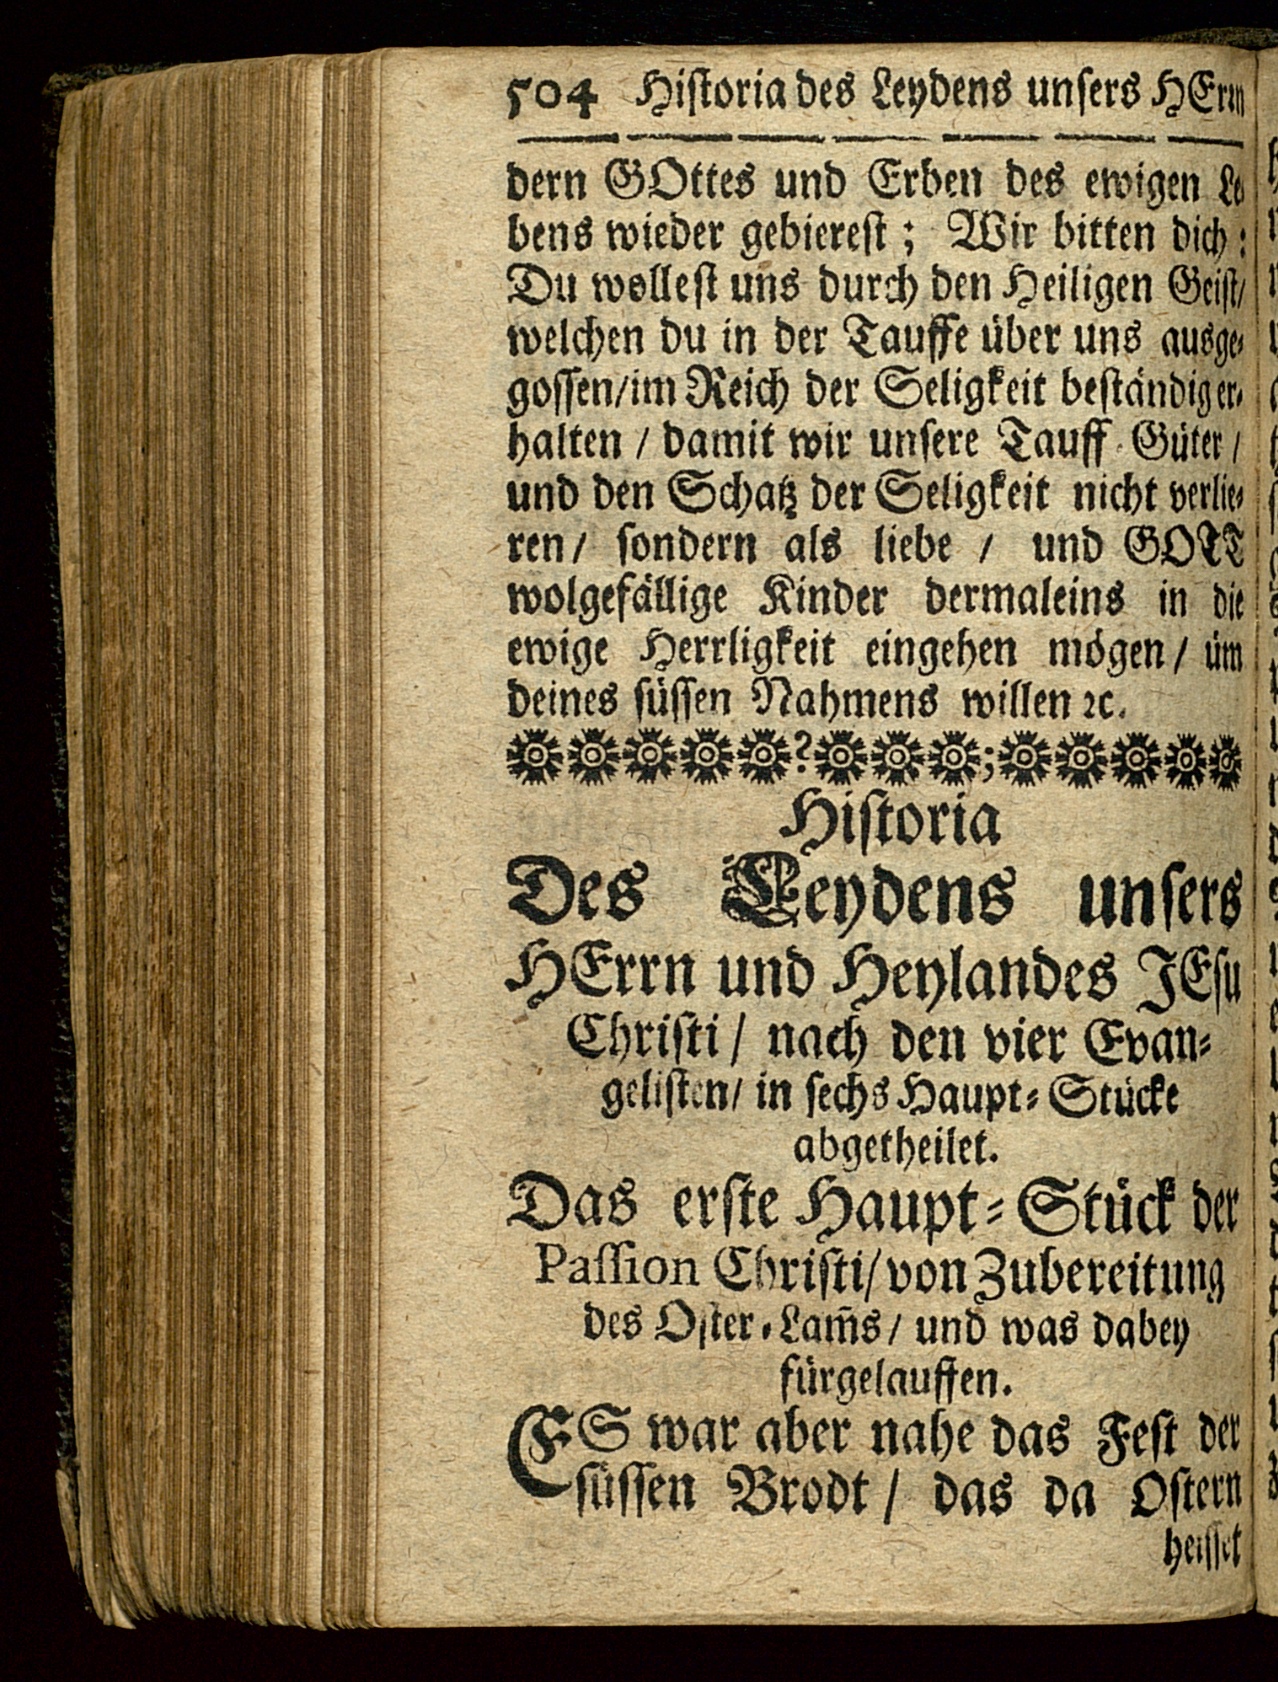 504 Historia des Leydens unsers HErrn
dern GOttes und Erben des ewigen Le
bens wieder gebierest; Wir bitten dich:
Du wollest uns durch den Heiligen Geist/
welchen du in der Tauffe über uns ausge-
gossen/im Reich der Seligkeit beständig er-
halten / damit wir unsere Tauff-Güter /
und den Schatz der Seligkeit nicht verlie-
ren / sondern als liebe / und GOTT
wolgefällige Kinder dermaleins in die
ewige Herrligkeit eingehen mögen / üm
deines süssen Nahmens willen ꝛc.
Historia
Des Leydens unsers
HErrn und Heylandes JEsu
Christi / nach den vier Evan-
gelisten / in sechs Haupt-Stücke
abgetheilet.
Das erste Haupt-Stück der
Passion Christi/von Zubereitung
des Oster-Lam̃s / und was dabey
fürgelauffen.
ES war aber nahe das Fest der
süssen Brodt / das da Ostern
heisset